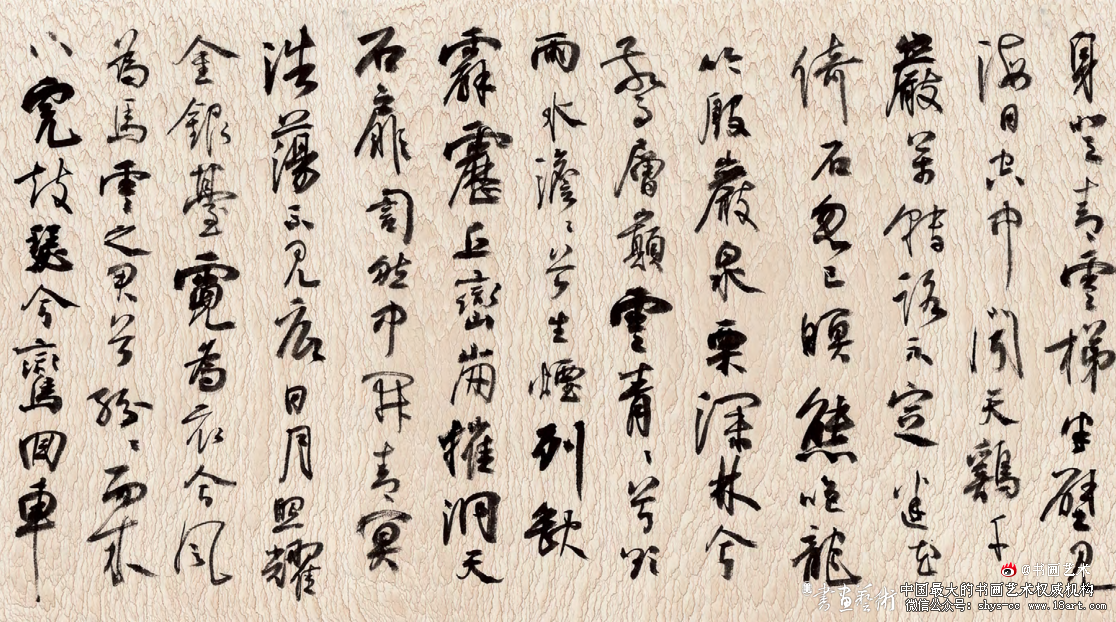 身登青雲梯半壁見
海日空中聞天鷄千
巖萬轉路不定迷花
倚石忽已暝熊咆龍
吟殷巖泉栗深林兮
驚層巔雲青青兮欲
雨水澹澹兮生煙列缺
霹靂丘巒崩摧洞天
石扉訇然中開青冥
浩蕩不見底日月照耀
金銀臺霓為衣兮風
為馬雲之君兮紛紛而來
下虎鼓瑟兮鸞回車
@书画艺术
書畫藝術
中国最大的书画艺术权威机构
微信公众号: shys-cc www.18art.com